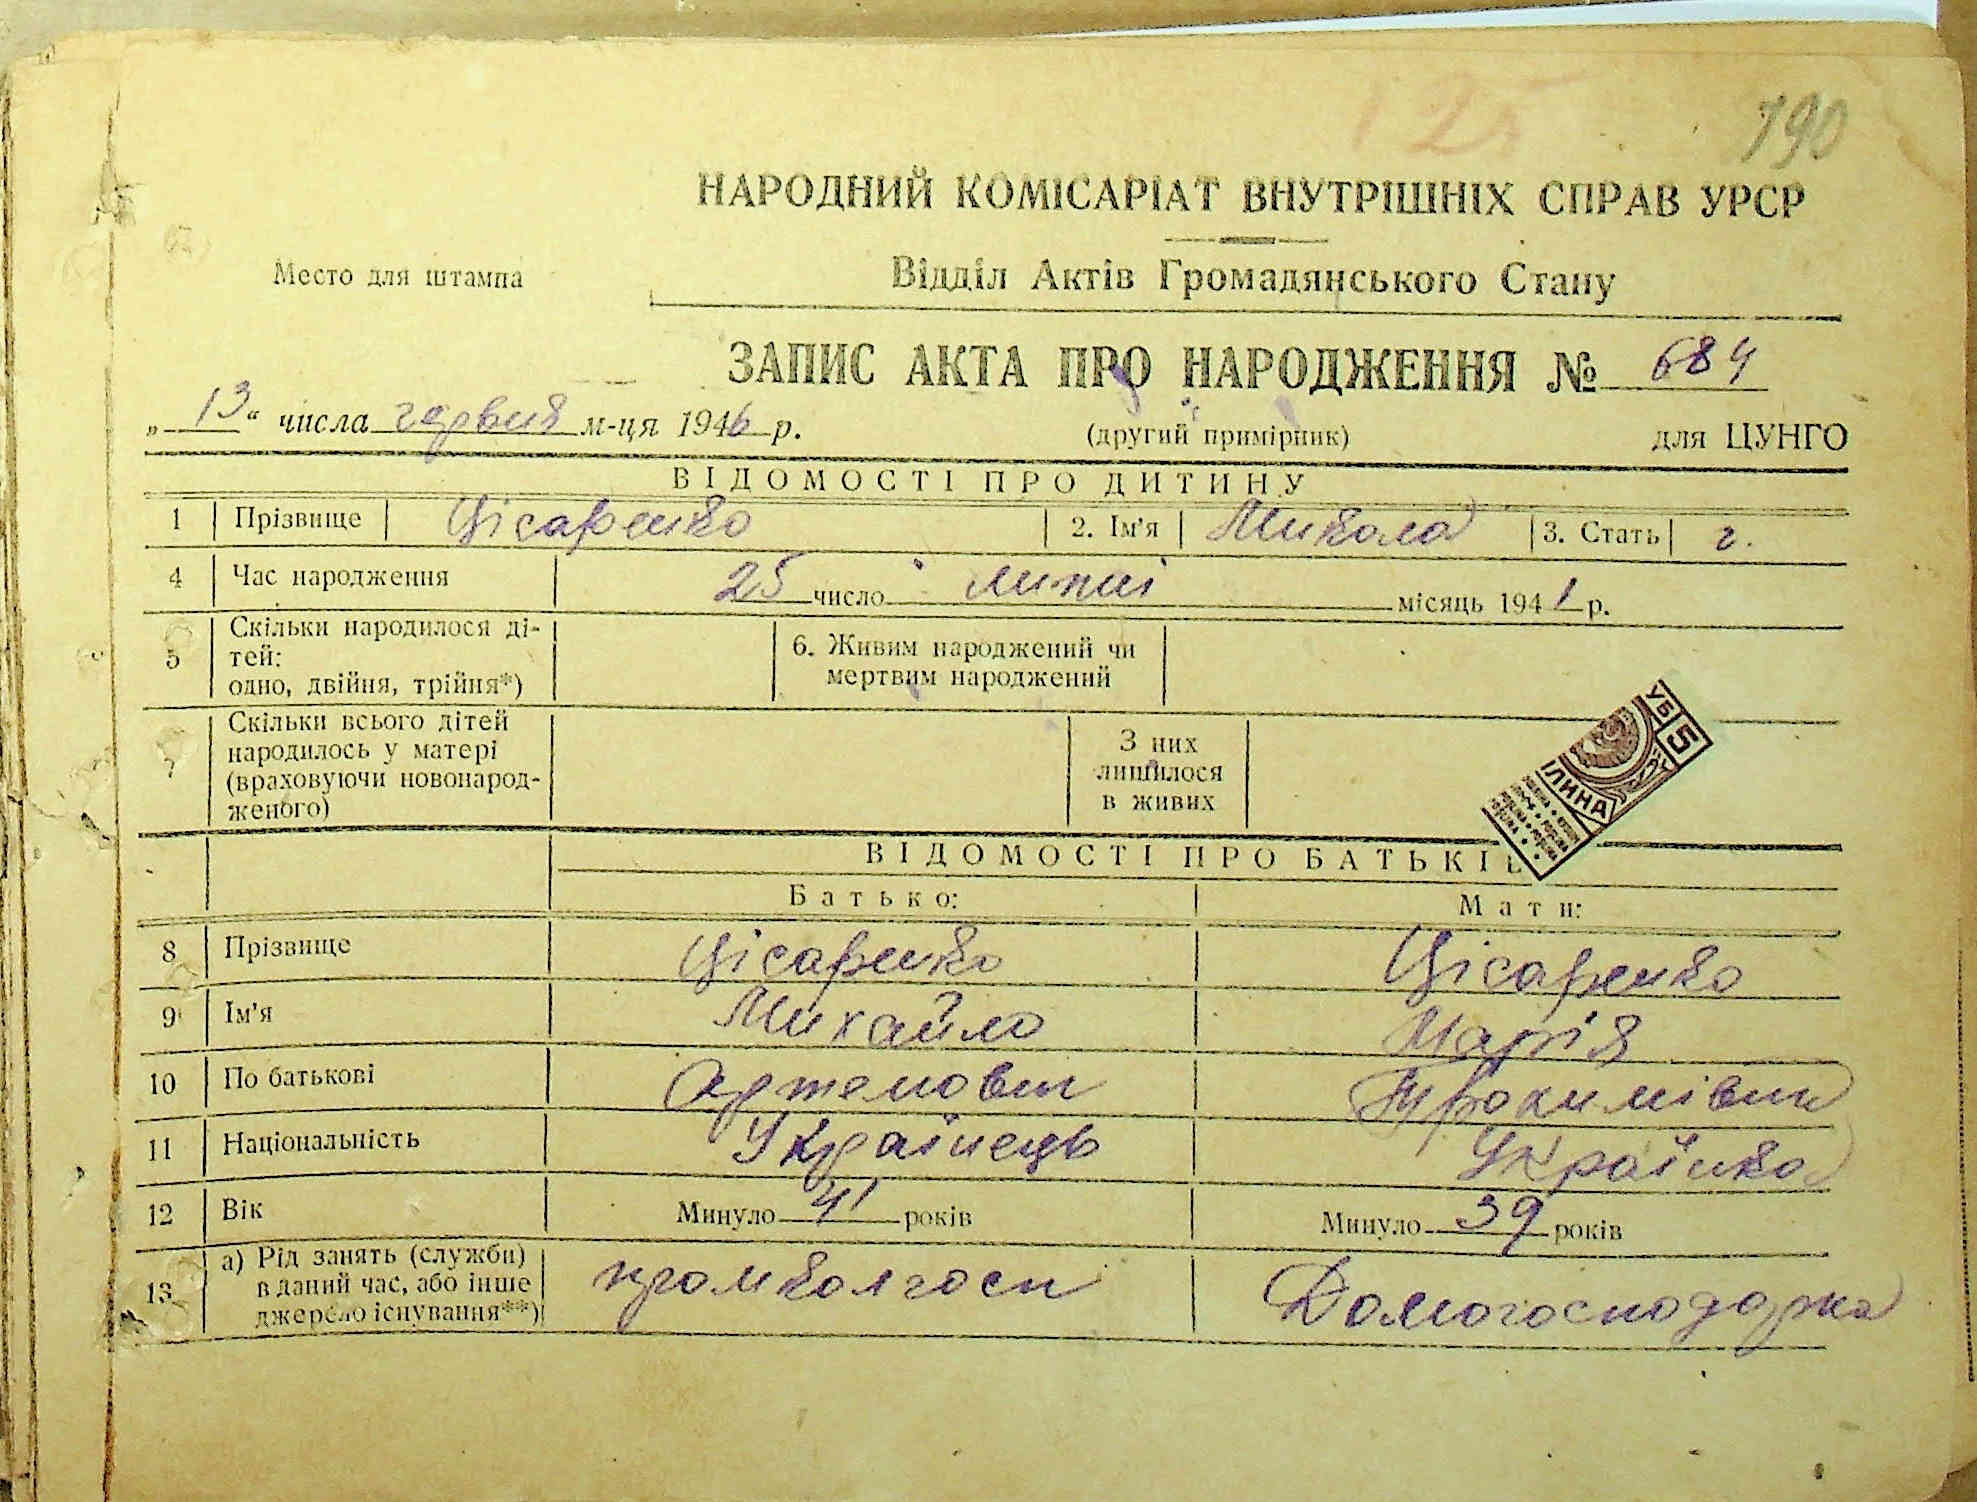 125
190
НАРОДНИЙ КОМІСАРІАТ ВНУТРІШНІХ СПРАВ УРСР
Место для штампа
Відділ Актів Громадянського Стану
ЗАПИС АКТА ПРО НАРОДЖЕННЯ № 684
„ 13 “ числа червня м-ця 1946 р.
(другий примірник)
для ЦУНГО
ВІДОМОСТІ ПРО ДИТИНУ
1 Прізвище Цісаренко 2. Ім'я Микола 3. Стать ч.
4 Час народження 25 число липні місяць 1941 р.
5 Скільки народилося ді-
тей:
одно, двійня, трійня*)
6. Живим народжений чи
мертвим народжений
7 Скільки всього дітей
народилось у матері
(враховуючи новонарод-
женого)
З них
лишилося
в живих
УБ 5
ЛИНА
ВІДОМОСТІ ПРО БАТЬКІВ
Батько: Мати:
8 Прізвище Цісаренко Цісаренко
9 Ім'я Михайло Марія
10 По батькові Артемович
11 Національність Українець Українка
12 Вік Минуло 41 років Минуло 39 років
13 а) Рід занять (служби)
в даний час, або інше
джерело існування**)
Домогосподарка